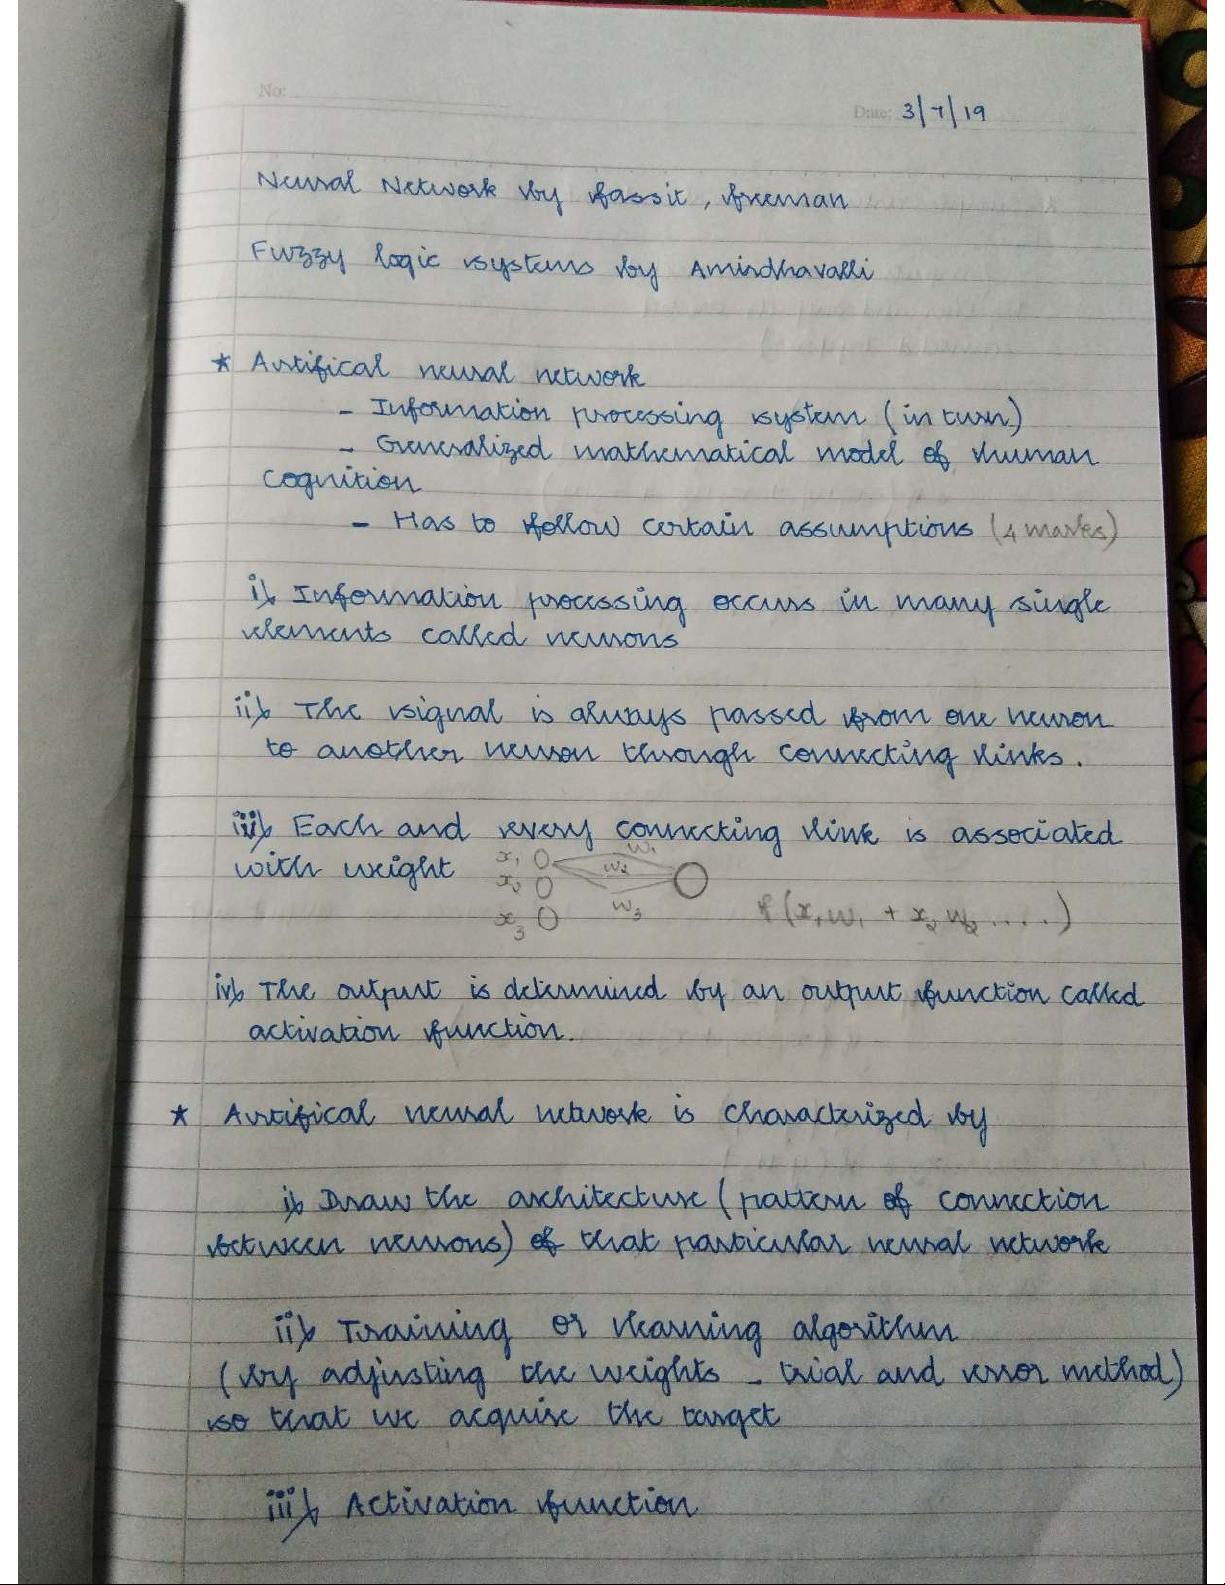 No:
Date: 3/7/19
Neural Network by fassit, freeman
Fuzzy logic systems by Amirdhavalli
* Artifical neural network
- Information processing system (in turn)
- Generalized mathematical model of human
cognition
- Has to follow certain assumptions (4 marks)
i) Information processing occurs in many single
elements called neurons
ii) The signal is always passed from one neuron
to another neuron through connecting links.
iii) Each and every connecting link is associated
with weight
x1 w1
x2 w2
x3 w3
f(x1w1 + x2w2 ....)
iv) The output is determined by an output function called
activation function.
* Artifical neural network is characterized by
i) Draw the architecture (pattern of connection
between neurons) of that particular neural network
ii) Training or learning algorithm
(by adjusting the weights - trial and error method)
so that we acquire the target
iii) Activation function